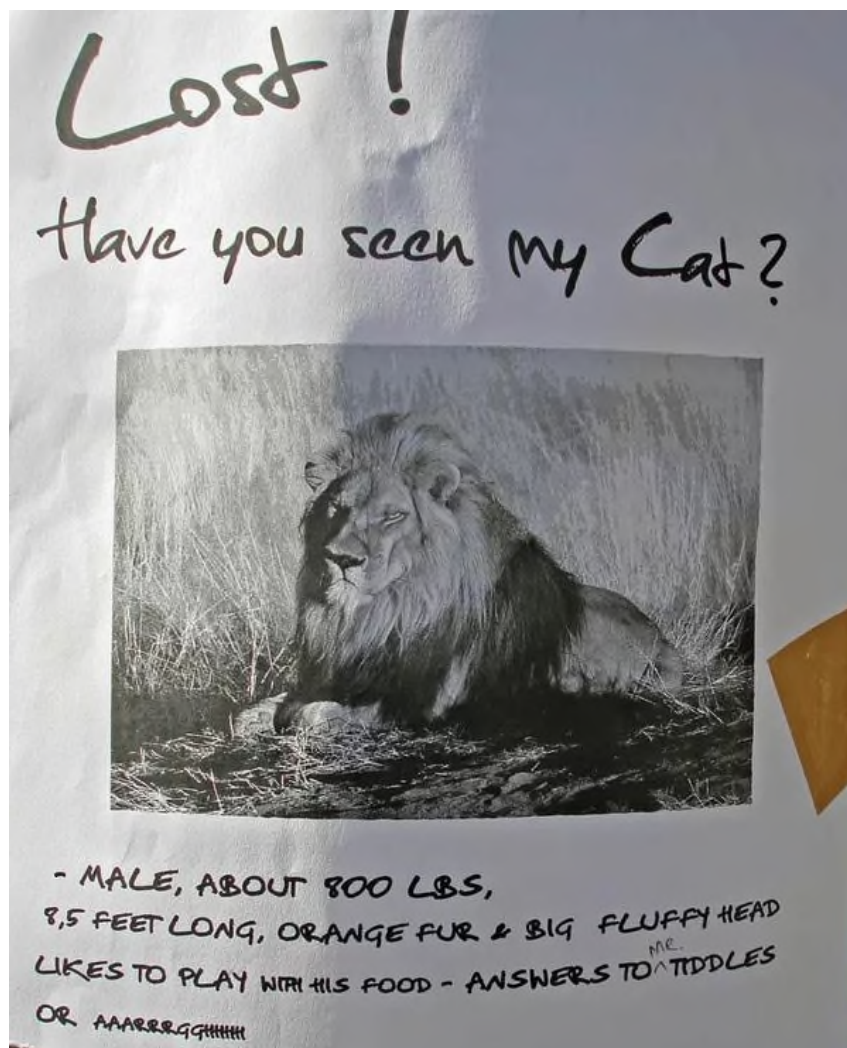 Lost!
Have you seen my Cat?
- MALE, ABOUT 800 LBS,
8,5 FEET LONG, ORANGE FUR & BIG FLUFFY HEAD
LIKES TO PLAY WITH HIS FOOD - ANSWERS TO ^MR. TIDDLES
OR AAARRRGGHHHHHH